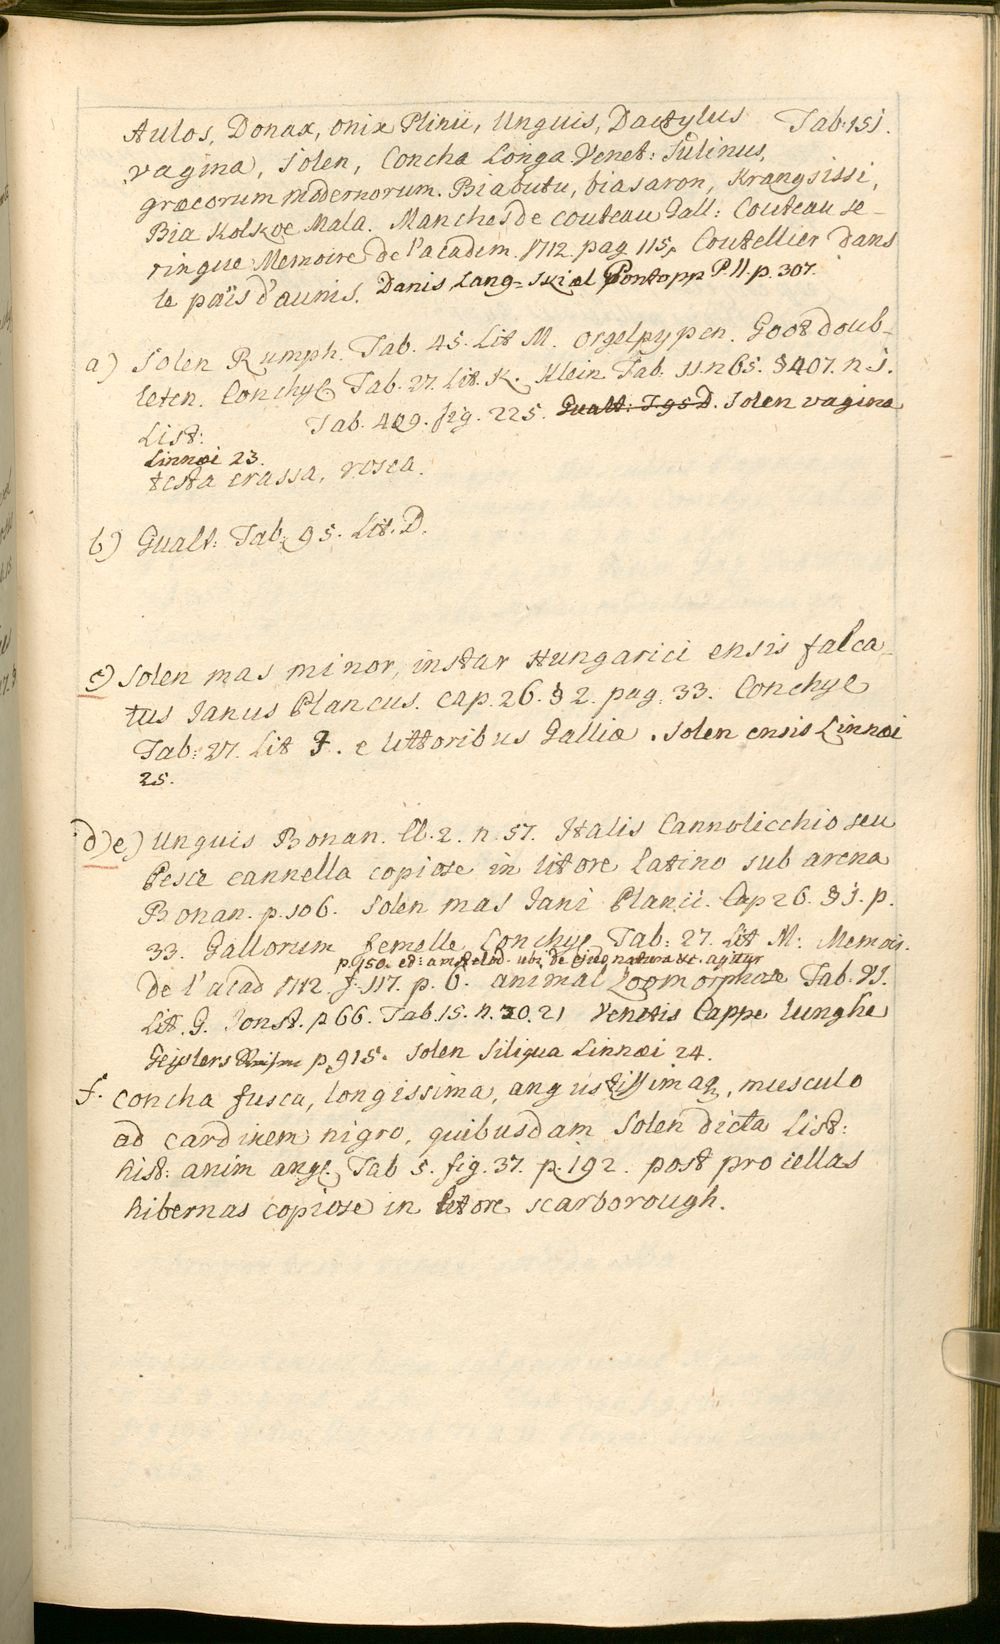 Aulos, Donax, onix Plinii, Unguis, Dactylus Tab. 151.
vagina, Solen, Concha Longa Venet: Sulinus,
græcorum modernorum. Biabutu, biasaron, Krangsissi,
Bia Kolkoe Mala. Manches de couteau Gall: Couteau se-
ringue Memoire de l'academ. 1712. pag 115, Coutellier dans
le païs d'aunis. Danis Lang-Skiæl Pontopp P. II. p. 307.
a) Solen Rumph. Tab. 45. Lit M. orgelpypen. Goot doub-
leten. Conchyl Tab. 27. Lit. K. Klein Tab. 11. n 65. § 407. n. 1.
List: Tab. 409. fig. 225. Gualt: T. 95 D. Solen vagina
Linnæi 23.
testa crassa, rosea.
b) Gualt: Tab. 95. Lit. D.
c) Solen mas minor, instar Hungarici ensis falca-
tus Janus Plancus. Cap. 26. § 2. pag. 33. Conchyl
Tab: 27. Lit . e littoribus Galliæ. Solen ensis Linnæi
25.
d) e) Unguis Bonan. Cl. 2. n. 57. Italis Cannolicchio seu
Pesce cannella copiose in litore Latino sub arena
Bonan. p. 106. Solen mas Jani Planci. Cap 26. § 1. p.
33. Gallorum femelle Conchyl Tab: 27. Lit M. Memoir.
p. 150. ed: amstelod. ubi de ejus natura &c. agitur
de l'acad 1712. f. 117. p. 6. animal Zoomorphose Tab. 71.
Lit. G. Jonst. p 66. Tab. 15. n. 20. 21 Venetis Cappe lunghe
p. 915. Solen Siliqua Linnæi 24.
f. Concha fusca, longissima, angustissimaq, musculo
ad cardinem nigro, quibusdam Solen dicta List:
hist: anim angl. Tab 5. fig. 37. p. 192. post procellas
hibernas copiose in litore scarborough.